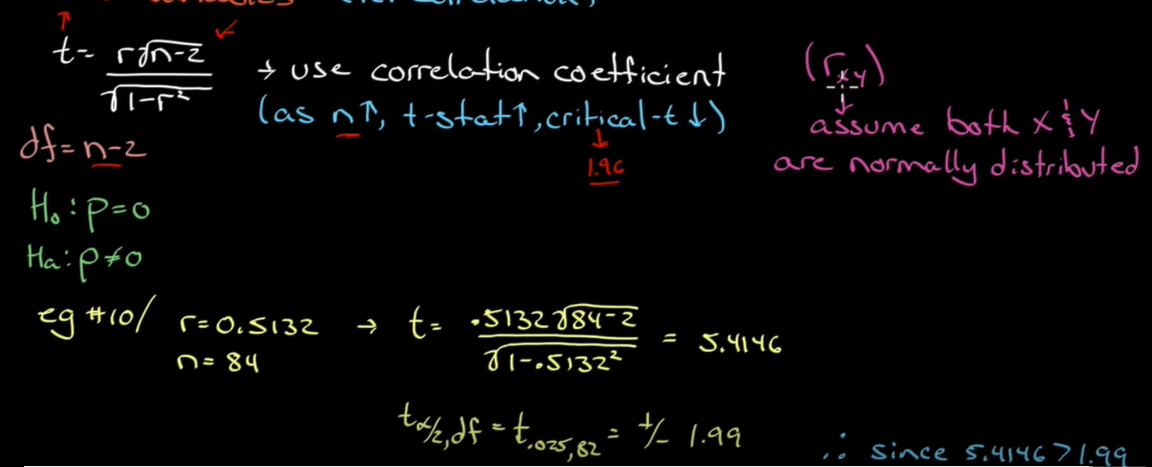 t = r√n-2 / √1-r² → use correlation coefficient
(as n↑, t-stat↑, critical-t↓)
1.96
(rxy)
assume both X & Y
are normally distributed
df = n-2
H₀: ρ=0
Ha: ρ≠0
eg #10/ r=0.5132 → t= .5132√84-2 / √1-.5132² = 5.4146
n= 84
tα/2,df = t.025,82 = +/- 1.99
∴ since 5.4146 > 1.99